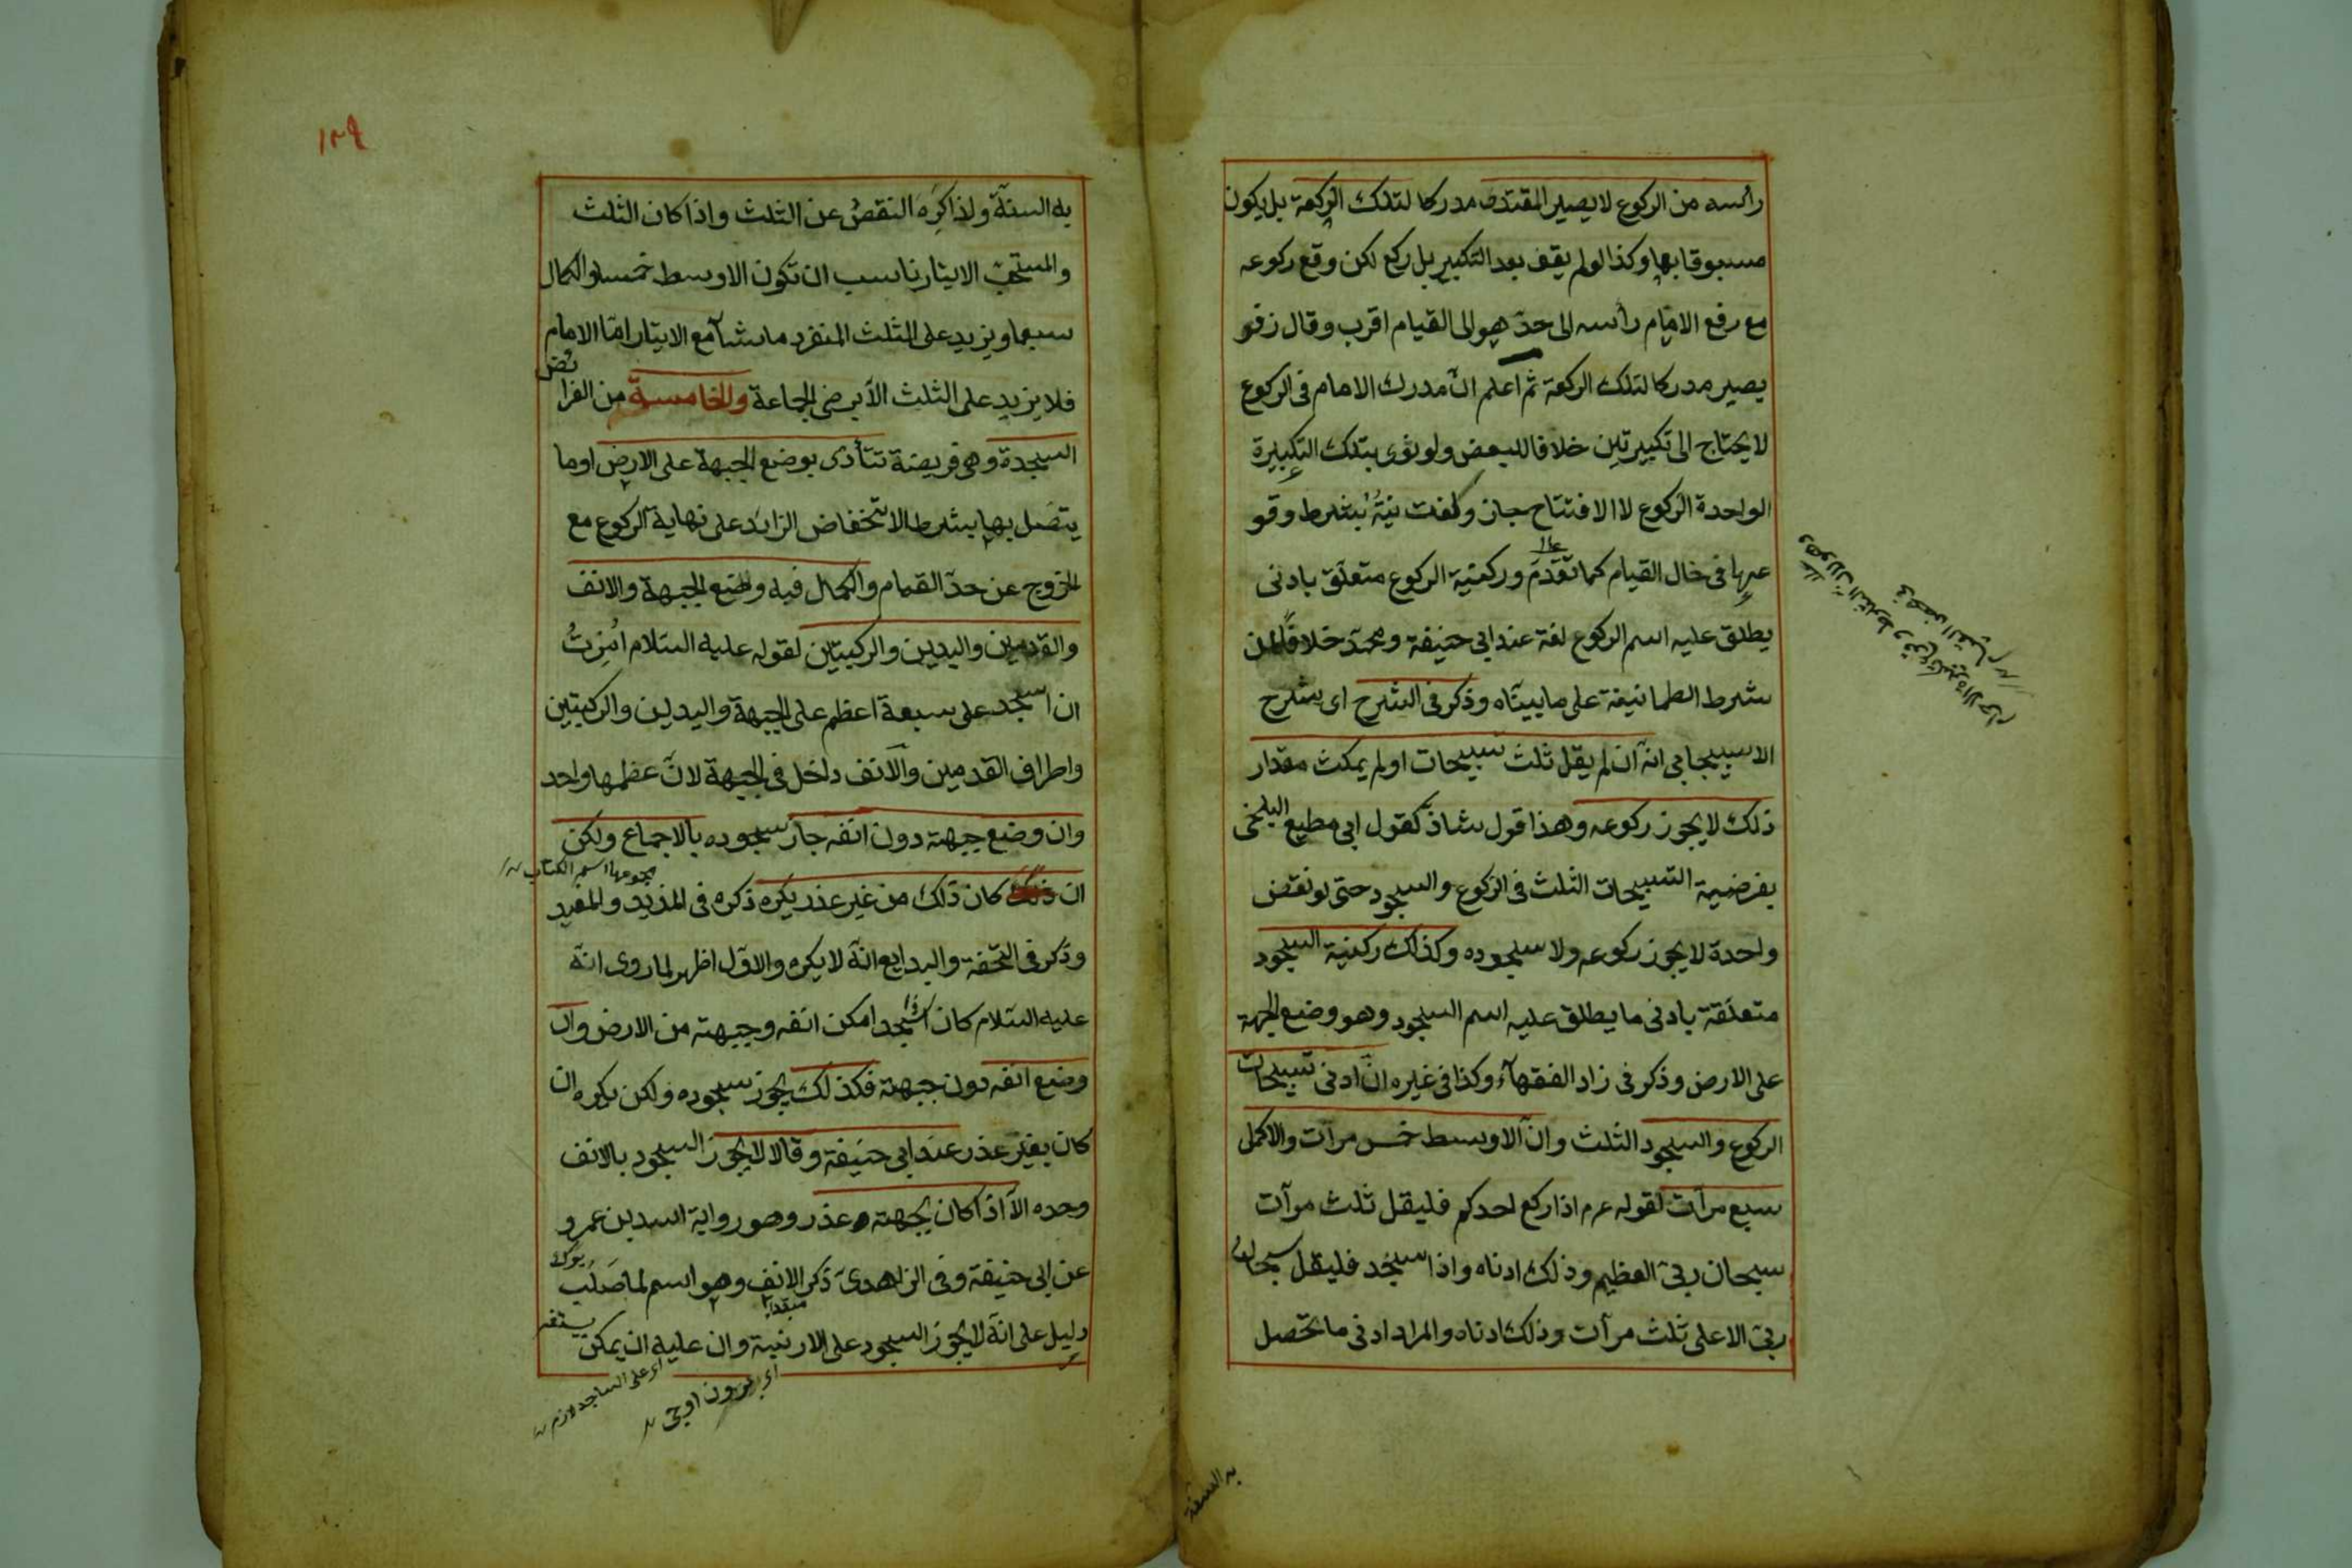 رأسه من الركوع لا يصير المقتدى مدركا لتلك الركعة بل يكون
مسبوقا بها وكذا لو لم يقف بعد التكبير بل ركع لكن وقع ركوعه
مع رفع الامام رأسه الى حدّ هو الى القيام اقرب وقال زفر
يصير مدركا لتلك الركعة ثم اعلم انّ مدرك الامام فى الركوع
لا يحتاج الى تكبيرتين خلافا للبعض ولو نوى بتلك التكبيرة
الواحدة الركوع لا الافتتاح جاز ولغت نيّتُه بشرط وقو
عها فى حال القيام كما تقدّم وركنيّة الركوع متعلّق بادنى
يطلق عليه اسم الركوع لغة عند ابى حنيفة ومحمّد خلافًا لمن
شرط الطمانينة على ما بيّنّاه وذكر فى الشرح اى شرح
الاسبيجابى انّه ان لم يقل ثلث تسبيحات او لم يمكث مقدار
ذلك لا يجوز ركوعه وهذا قول شاذّ كقول ابى مطيع البلخى
بفرضية التسبيحات الثلث فى الركوع والسجود حتى لو نقص
واحدة لا يجوز ركوعه ولا سجوده وكذلك ركنية السجود
متعلّقة بادنى ما يطلق عليه اسم السجود وهو وضع الجبهة
على الارض وذكر فى زاد الفقهاء وكذا فى غيره انّ ادنى تسبيحات
الركوع والسجود الثلث وانّ الاوسط خمس مرآت والاكمل
سبع مرآت لقوله عم اذا ركع احدكم فليقل ثلث مرآت
سبحان ربّى العظيم وذلك ادناه واذا سجد فليقل سبحان
ربّى الاعلى ثلث مرآت وذلك ادناه والمراد ادنى ما يحصل
به السنة
١٣٩
به السنّة ولذا كَرِهَ النقصُ عن الثلث واذا كان الثلث
والمستحبّ الايتار ناسب ان تكون الاوسط خمسا والكمال
سبعا ويزيد على الثلث المنفرد ما شآ مع الايتار امّا الامام
فلا يزيد على الثلث الّا برضى الجماعة والخامسة من الفرا
ئض
السجدة وهى فريضة تتأدى بوضع الجبهة على الارض او ما
يتصل بها بشرط الانخفاض الزائد على نهاية الركوع مع
الخروج عن حدّ القيام والكمال فيه وضع الجبهة والانف
والقدمين واليدين والركبتين لقوله عليه السّلام اُمِرْتُ
ان اسجد على سبعة اعظم على الجبهة واليدين والركبتين
واطراف القدمين والانف داخل فى الجبهة لانّ عظمها واحد
وان وضع جبهته دون انفه جاز سجوده بالاجماع ولكن
مجموعها اسم الكتاب
ان كان ذلك من غير عذر يكره ذكره فى المزيد والمفيد
وذكر فى التحفة والبدايع انّه لا يكره والاوّل اظهر لما روى انّه
عليه السّلام كان اذا سجد امكن انفه وجبهته من الارض وان
وضع انفه دون جبهته فكذلك يجوز سجوده ولكن يكره ان
كان بغير عذر عند ابى حنيفة وقالا لا يجوز السجود بالانف
وحده الّا اذا كان بجبهته عذر وهو رواية اسد بن عمرو
عن ابى حنيفة وفى الزاهدىّ ذكر الانف وهو اسم لما صَلُب
دليل على انّه لا يجوز السجود على الارنبة وان عليه ان يمكن
اى على الساجد لازم
اى برون اوجى